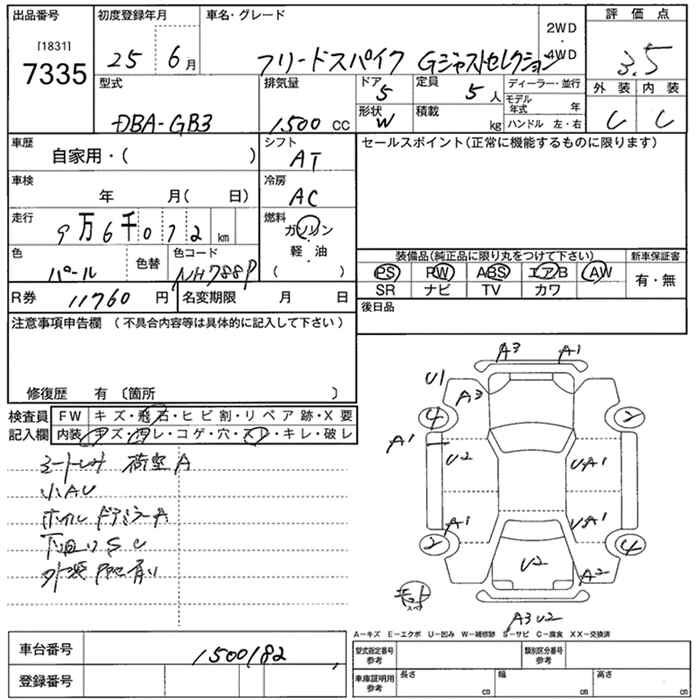 出品番号 初度登録年月 車名・グレード 評価点
[1831] 2WD
7335 25 6月 フリードスパイク Gジャストセレクション 4WD 3.5
型式 排気量 ドア 定員 ディーラー・並行 外装 内装
5 5人 モデル年式 年
DBA-GB3 1,500 CC 形状 W 積載 kg ハンドル 左・右 C C
車歴 シフト セールスポイント(正常に機能するものに限ります)
自家用・( ) AT
車検 冷房
年 月( 日) AC
走行 燃料
9万6千072km ガソリン
軽・油
色 色替 色コード ( ) 装備品(純正品に限り丸をつけて下さい) 新車保証書
パール NH788P PS PW ABS エアB AW 有・無
R券 11760円 名変期限 月 日 SR ナビ TV カワ
注意事項申告欄(不具合内容等は具体的に記入して下さい) 後日品
修復歴 有〔箇所 〕
検査員 FW キズ・飛石・ヒビ割・リペア跡・X要
記入欄 内装 キズ・汚レ・コゲ・穴・スレ・キレ・破レ
A3 A1
U1 A3
4 2
A1 U2 UA1
シートしみ 荷室A
小AU
ホイル ドアミラーA
A1 UA1
下回りSC
2 4
U2 A2
A3U2
A-キズ E-エクボ U-凹み W-補修跡 S-サビ C-腐食 XX-交換済
車台番号 1500182 型式指定番号 参考 類別区分番号 参考
登録番号 車庫証明用 参考 長さ cm 幅 cm 高さ cm